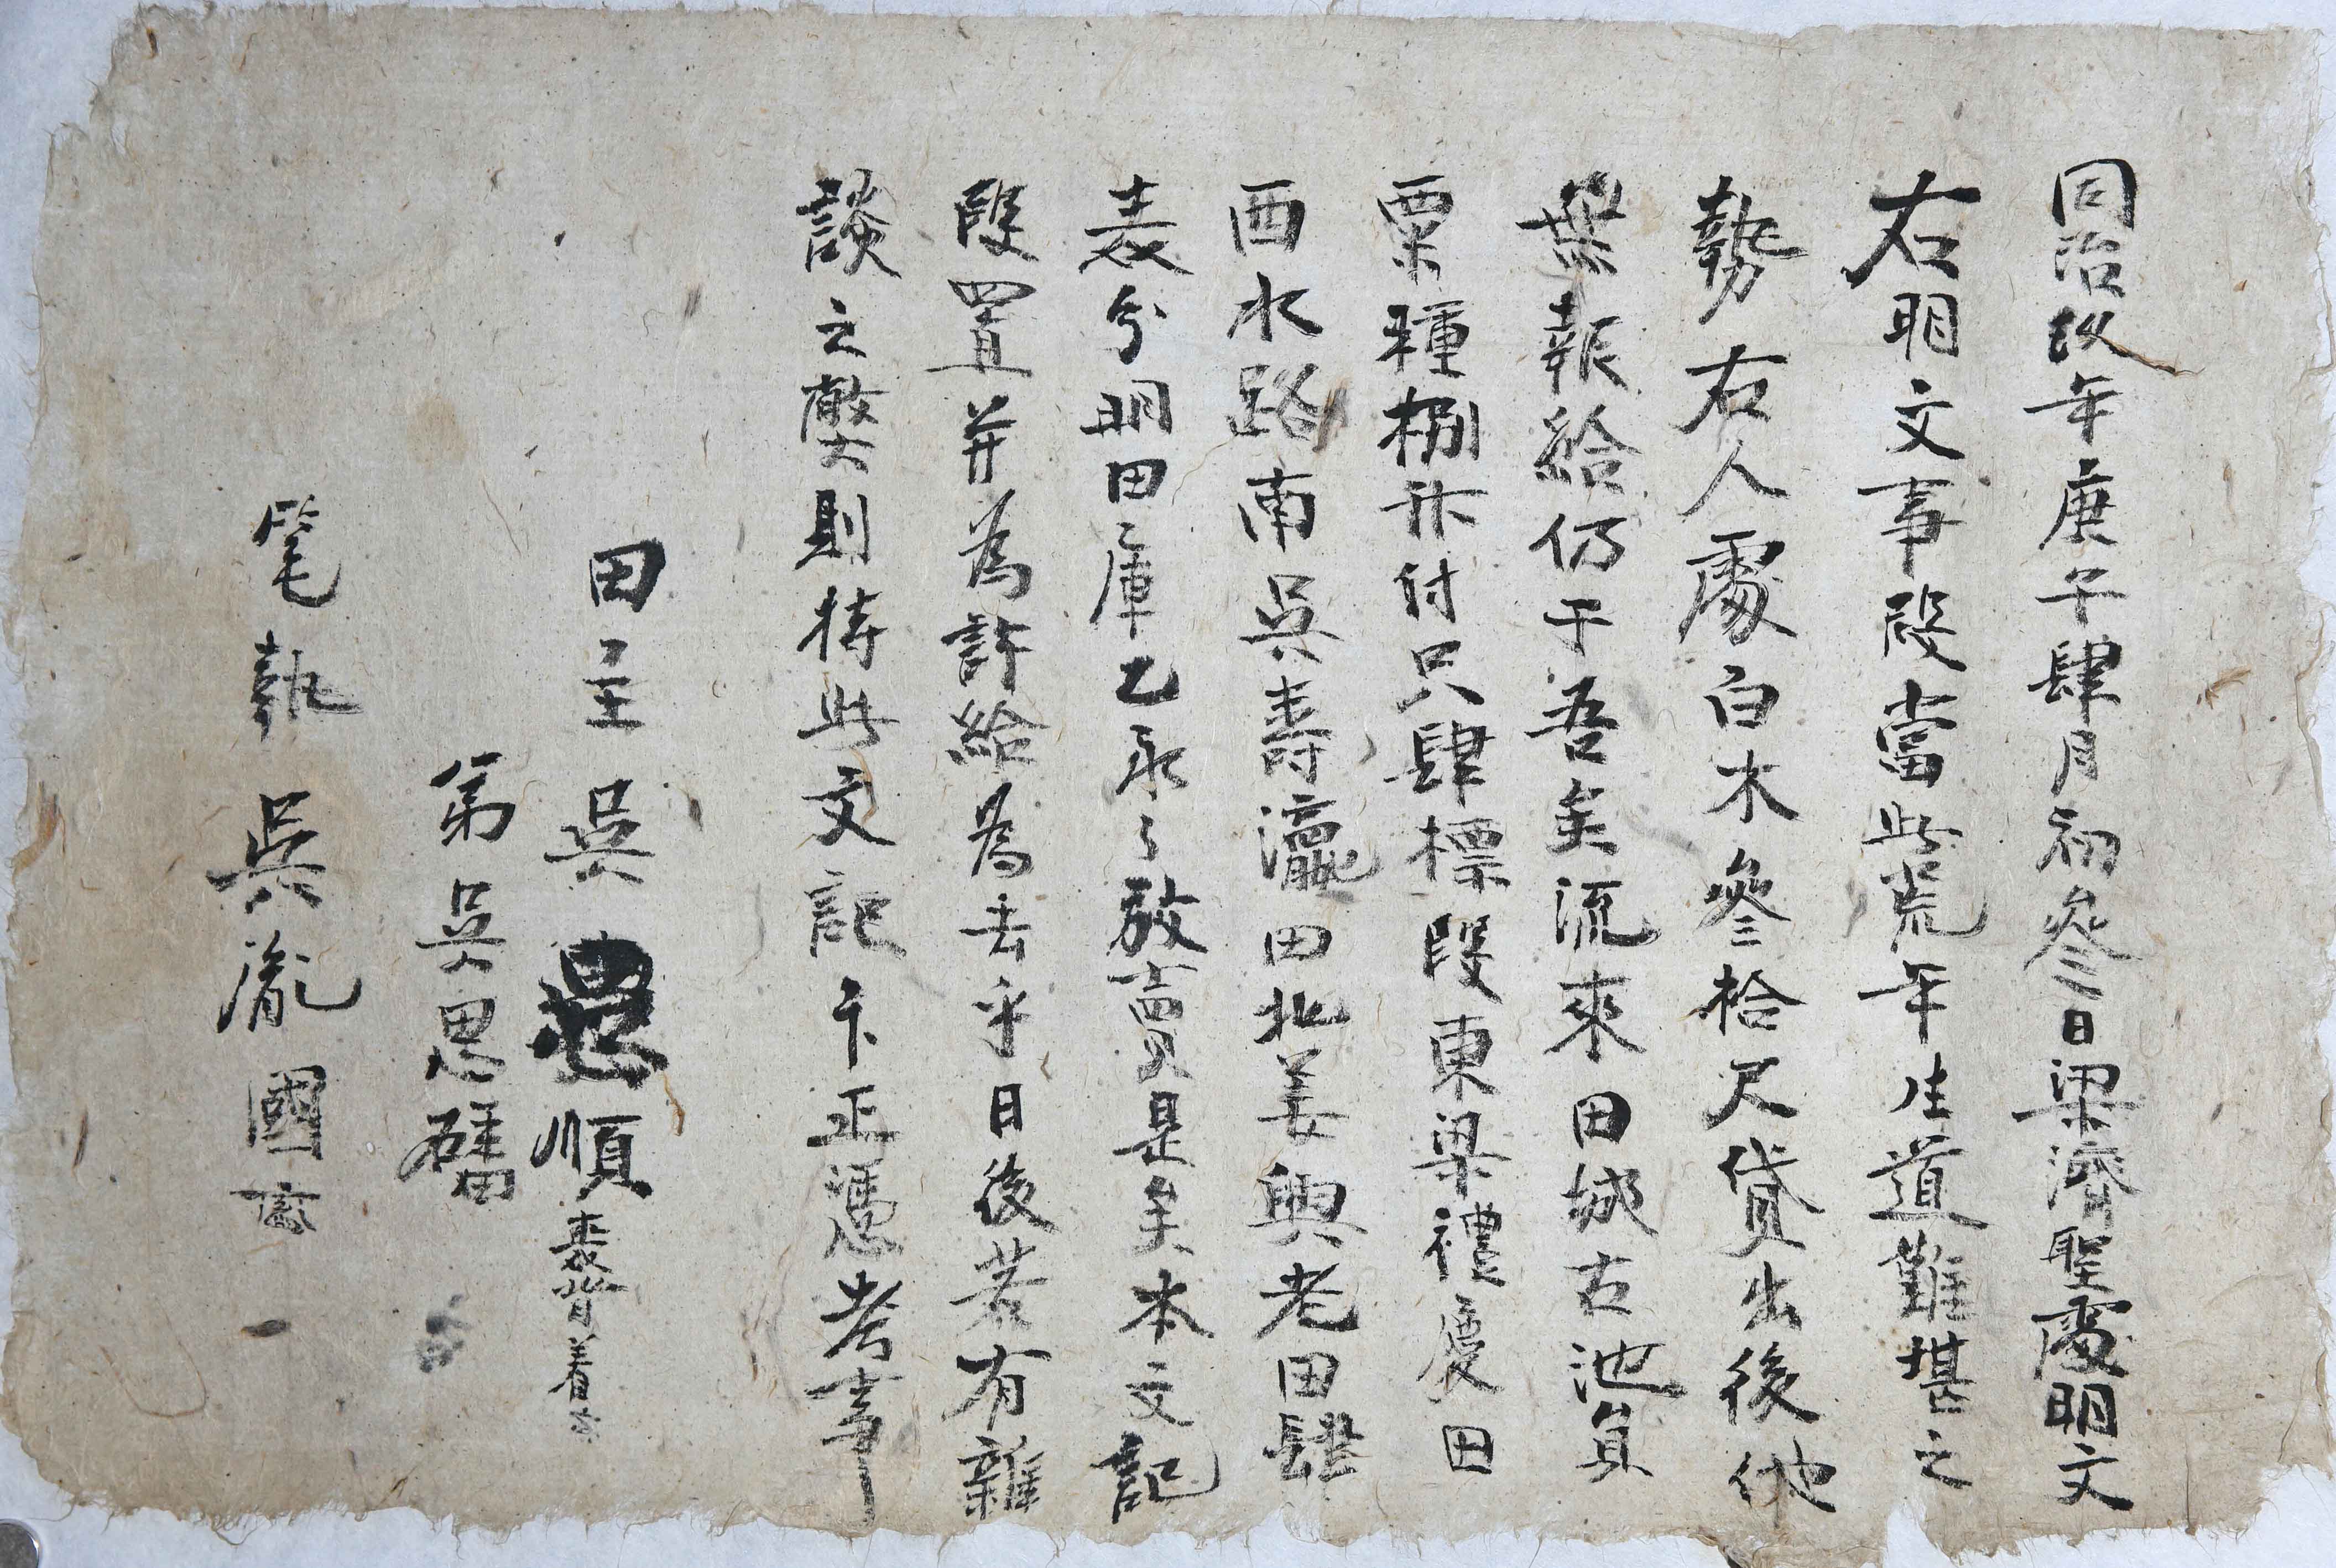 同治玖年庚午肆月初參日梁濟聖處明文
右明文事段當此荒年生道難堪之
勢右人處白木參拾尺貸出後他
葉報給仍于吾矣流來田城古池員
粟種捌升付只肆標段東梁禮慶田
西水路南吳壽瀛田北姜興老田肆
表分明田庫乙永々放賣是矣本文記
段置并為許給為去乎日後若有雜
談之弊則持此文記卞正憑考事
田主吳思順喪背着
弟吳思磻
筆執吳胤國